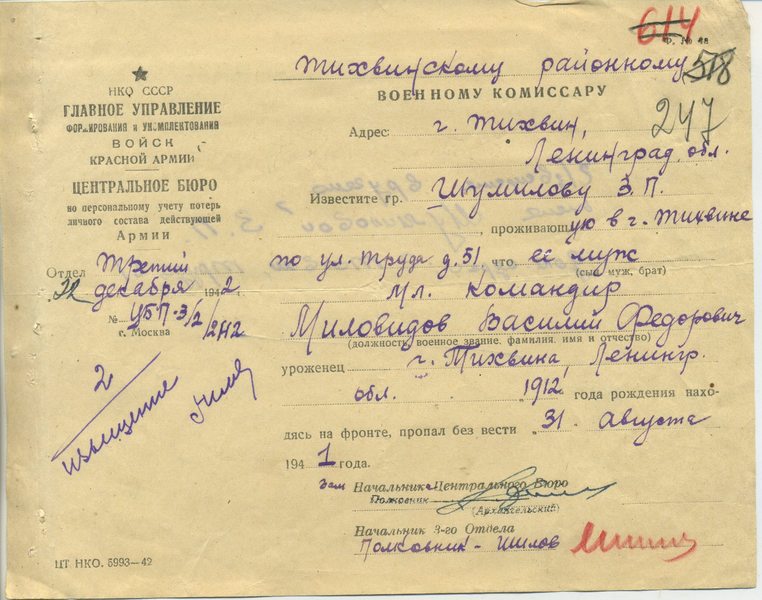 614
Ф. № 48
НКО СССР
ГЛАВНОЕ УПРАВЛЕНИЕ
ФОРМИРОВАНИЯ и УКОМПЛЕКТОВАНИЯ
ВОЙСК
КРАСНОЙ АРМИИ
ЦЕНТРАЛЬНОЕ БЮРО
по персональному учету потерь
личного состава действующей
Армии
Отдел Третий
32 декабря 1942
№ УБП-3/2/2412
г. Москва
2
извещение
Тихвинскому районному 578
ВОЕННОМУ КОМИССАРУ
247
Адрес: г. Тихвин,
Ленинград. обл.
Известите гр. Шумилову З.П.
, проживающую в г. Тихвине
по ул. Труда д. 51, что ее муж
(сын, муж, брат)
Мл. командир
Миловидов Василий Федорович
(должность, военное звание, фамилия, имя и отчество)
уроженец г. Тихвина, Ленингр.
обл. 1912 года рождения нахо-
дясь на фронте, пропал без вести 31 августа
1941 года.
Зам Начальника Центрального Бюро
Полковник
(Архангельский)
Начальник 3-го Отдела
Полковник - Шилов
ЦТ НКО. 5993—42